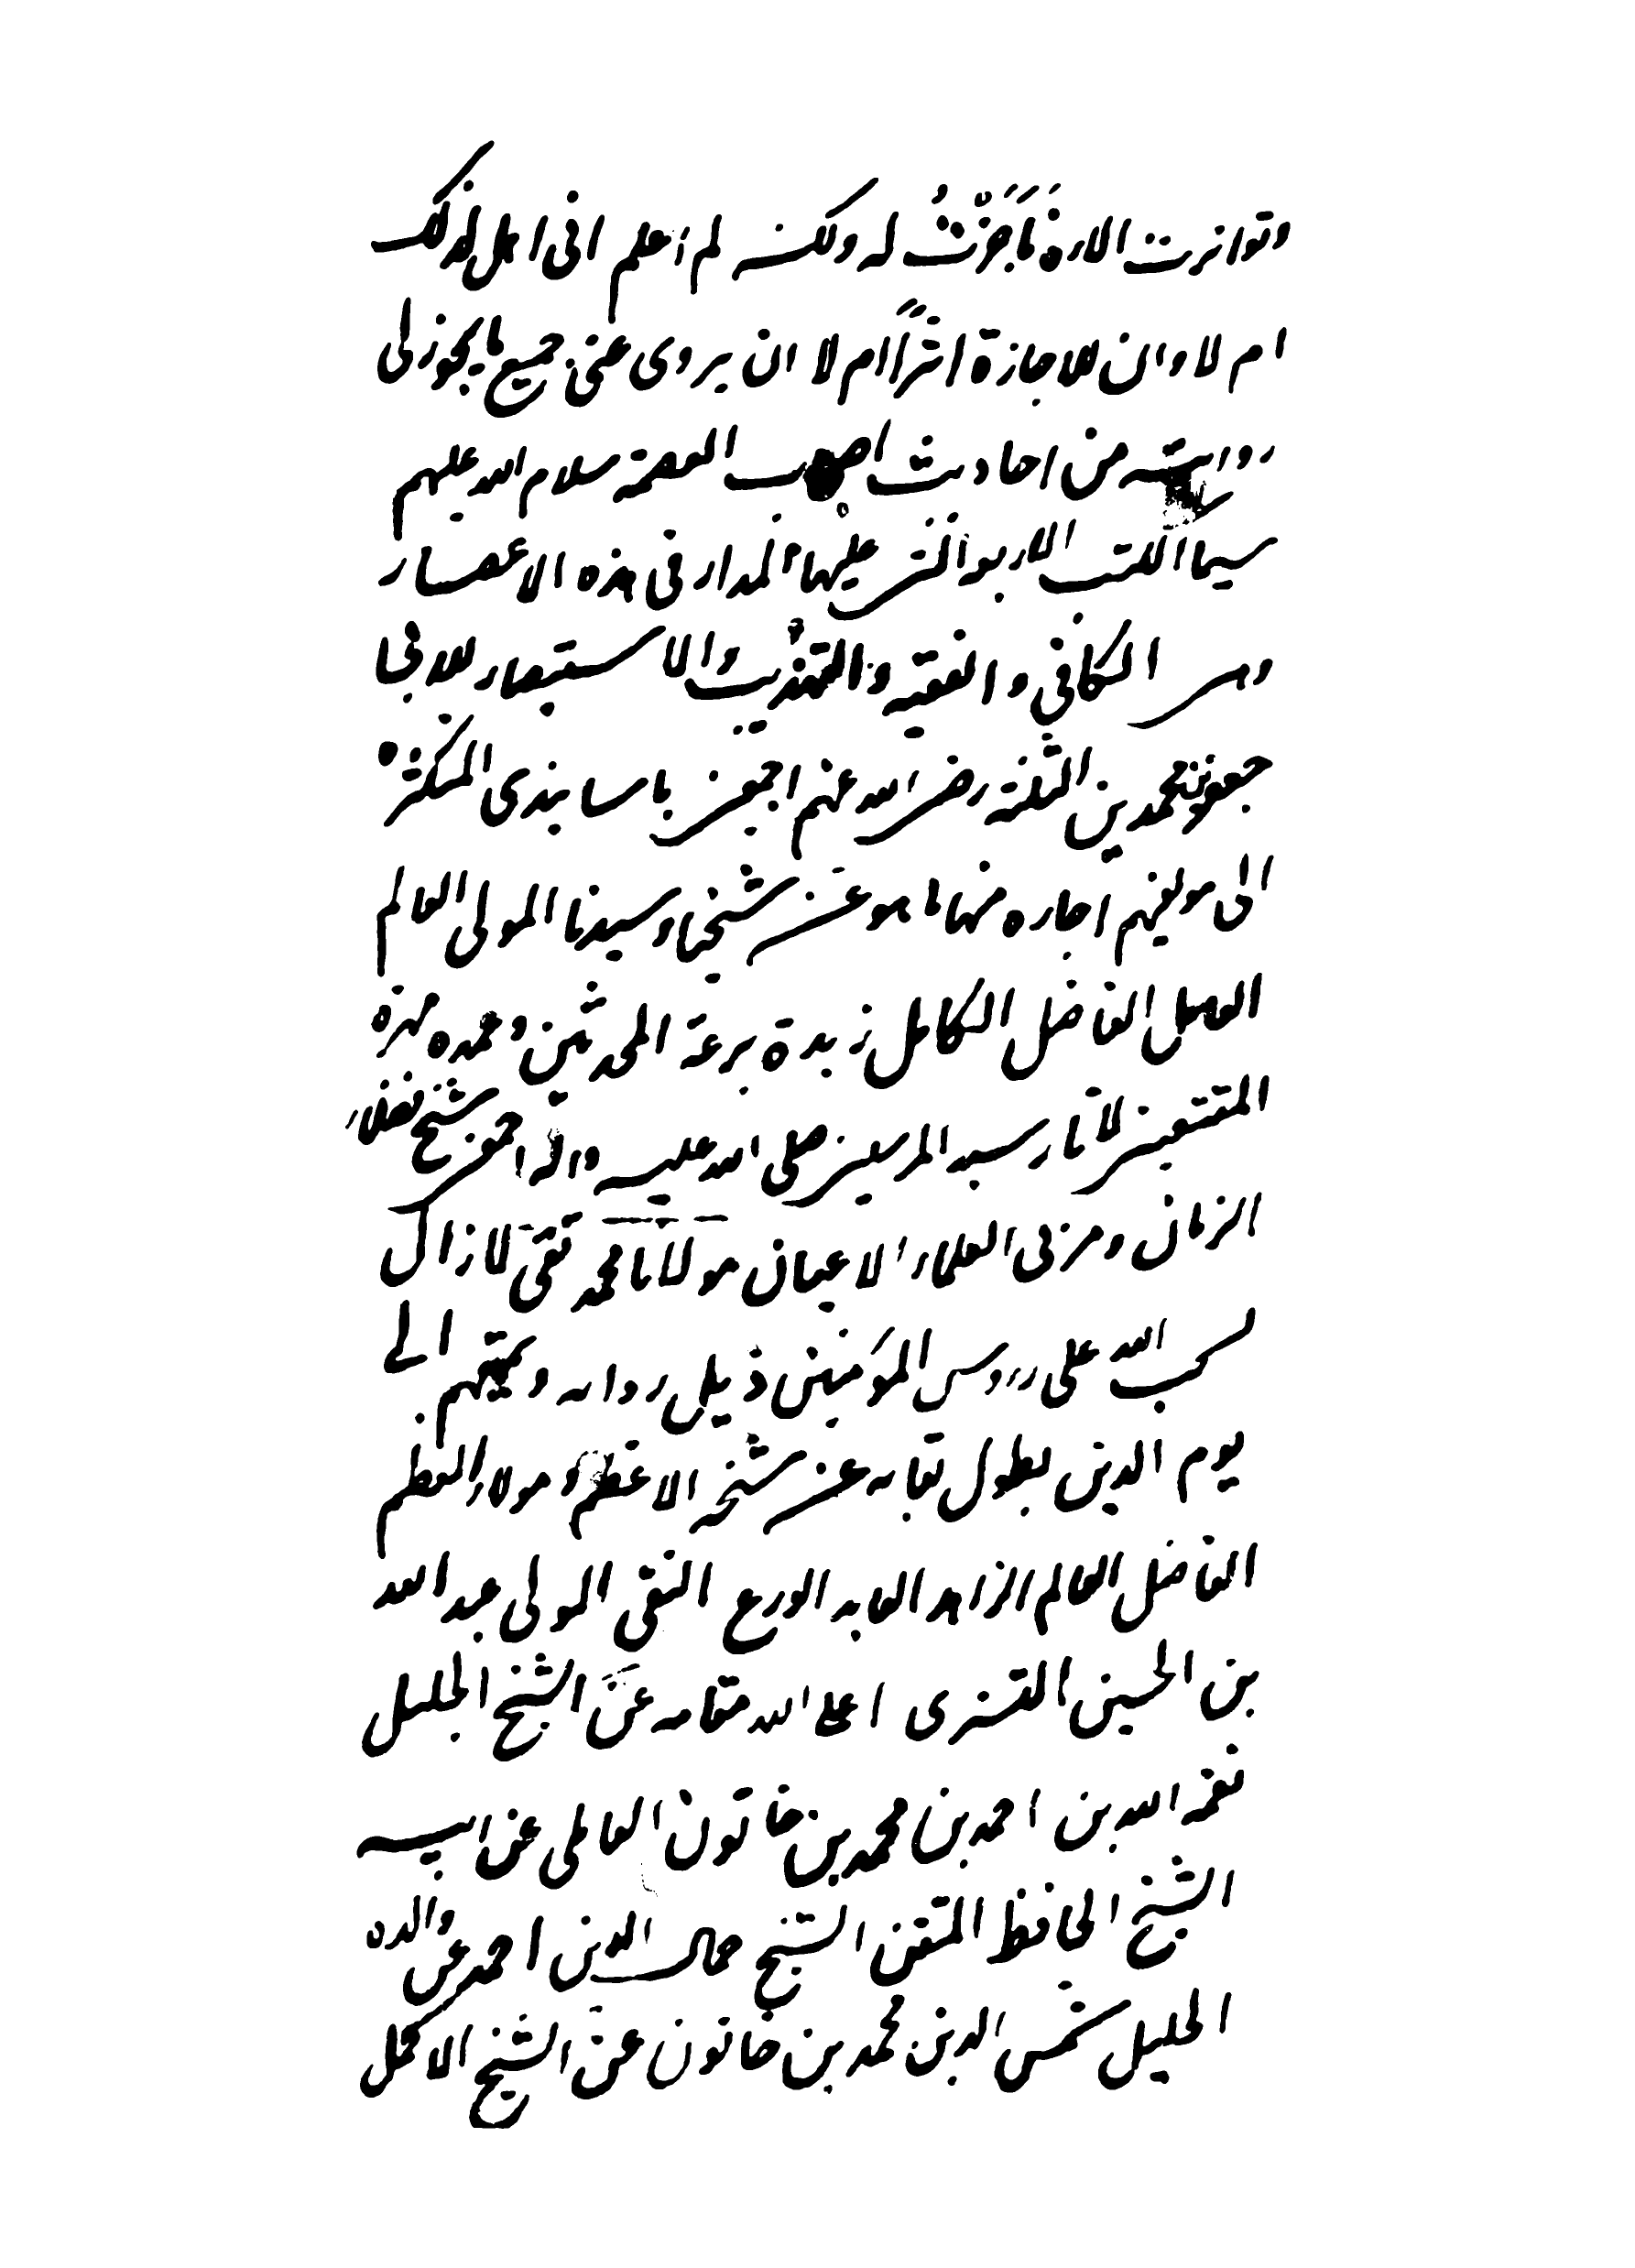 وتواترت الارادة فاجزتُ له ولكن لم اعلم انى اهل لذلك
ام لا وان للاجازة اثراً ام لا ان يروى عنى جميع ما يجوز لى
روايته من احاديث اصحاب العصمة سلام الله عليهم
سيما الكتب الاربع التى عليها المدار فى هذه الاعصار
وهى الكافى و الفقيه و التهذيب والاستبصار للابى
جعفر محمدين الثلثة رضى الله عنهم اجمعين باسانيدى المتكثرة
الى مولفيهم اجاره منها ما هو عن شيخنا وسيدنا المولى العالم
العامل الفاضل الكامل زبدة برعة المحدثين وعمده مهرة
المتتبعين لآثار سيد المرسلين صلى الله عليه واله اجمعين شيخ فضلاء
الزمان ومربى العلماء الاعيان مولانا محمد تقى لازال
يسحب الله على رؤوس المؤمنين ذيل ردائه ويمتعهم الى
يوم الدين بطول بقائه عن شيخه الاعظم ومولاه المعظم
الفاضل العالم الزاهد العابد الورع التقى المولى عبد الله
بن الحسين التسترى اعلا الله مقامه عن الشيخ الجليل
نعمة الله بن احمد بن محمد بن خاتون العاملى عن ابيه
الشيخ الحافظ المتقن الشيخ جمال الدين احمد عن والده
الجليل شمس الدين محمد بن خاتون عن الشيخ الاكمل